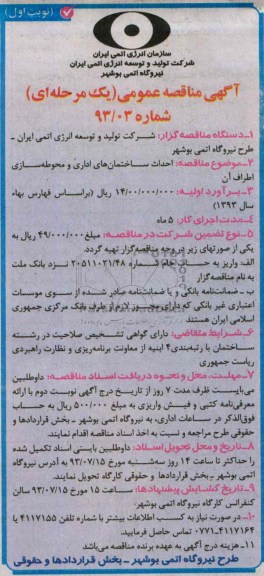 (نوبت اول)
سازمان انرژی اتمی ایران
شرکت تولید و توسعه انرژی اتمی ایران
نیروگاه اتمی بوشهر
آگهی مناقصه عمومی (یک مرحله‌ای)
شماره ۹۳/۰۳
۱ـ دستگاه مناقصه‌گزار: شرکت تولید و توسعه انرژی اتمی ایران ـ
طرح نیروگاه اتمی بوشهر
۲ـ موضوع مناقصه: احداث ساختمان‌های اداری و محوطه‌سازی
اطراف آن
۳ـ برآورد اولیه: ۱۴/۰۰۰/۰۰۰/۰۰۰ ریال (براساس فهارس بهاء
سال ۱۳۹۳)
۴ـ مدت اجرای کار: ۵ ماه
۵ـ نوع تضمین شرکت در مناقصه: مبلغ ۴۹۰/۰۰۰/۰۰۰ ریال به
یکی از صورتهای زیر در وجه مناقصه‌گزار تهیه گردد.
الف: واریز به حساب جام شماره ۲۰۵۱۱۰۲۱/۴۸ نزد بانک ملت
به نام مناقصه‌گزار
ب ـ ضمانت‌نامه بانکی و یا ضمانت‌نامه صادر شده از سوی موسات
اعتباری غیر بانکی که دارای مجوز لازم از طرف بانک مرکزی جمهوری
اسلامی ایران هستند
۶ـ شرایط متقاضی: دارای گواهی تشخیص صلاحیت در رشته
ساختمان با رتبه‌بندی ۴ ابنیه از معاونت برنامه‌ریزی و نظارت راهبردی
ریاست جمهوری
۷ـ مهلت، محل و نحوه دریافت اسناد مناقصه: داوطلبین
می‌بایست ظرف مدت ۷ روز از تاریخ درج آگهی نوبت دوم با ارائه
معرفی‌نامه کتبی و فیش واریزی به مبلغ ۵۰۰/۰۰۰ ریال به حساب
فوق‌الذکر در ساعات اداری، به نیروگاه اتمی بوشهر ـ بخش قراردادها و
حقوقی طرح مراجعه و نسبت به اخذ اسناد مناقصه اقدام نمایند.
۸ـ تاریخ و محل تحویل اسناد: داوطلبین بایستی اسناد تکمیل شده
را حداکثر تا ساعت ۱۴ روز سه‌شنبه مورخ ۹۳/۰۷/۱۵ به آدرس نیروگاه
اتمی بوشهر ـ بخش قراردادها و حقوقی کارگاه تحویل نمایند.
۹ـ تاریخ گشایش پیشنهادها: ساعت ۱۵ مورخ ۹۳/۰۷/۱۵ سالن
کنفرانس کارگاه نیروگاه اتمی بوشهر.
۱۰ـ در صورت نیاز به کسب اطلاعات بیشتر با شماره تلفن ۴۱۱۷۱۵۵ یا
۰۷۷۱-۴۱۱۷۱۶۴ تماس حاصل فرمایید.
۱۱ـ هزینه درج آگهی به عهده برنده مناقصه می‌باشد
طرح نیروگاه اتمی بوشهر ـ بخش قراردادها و حقوقی